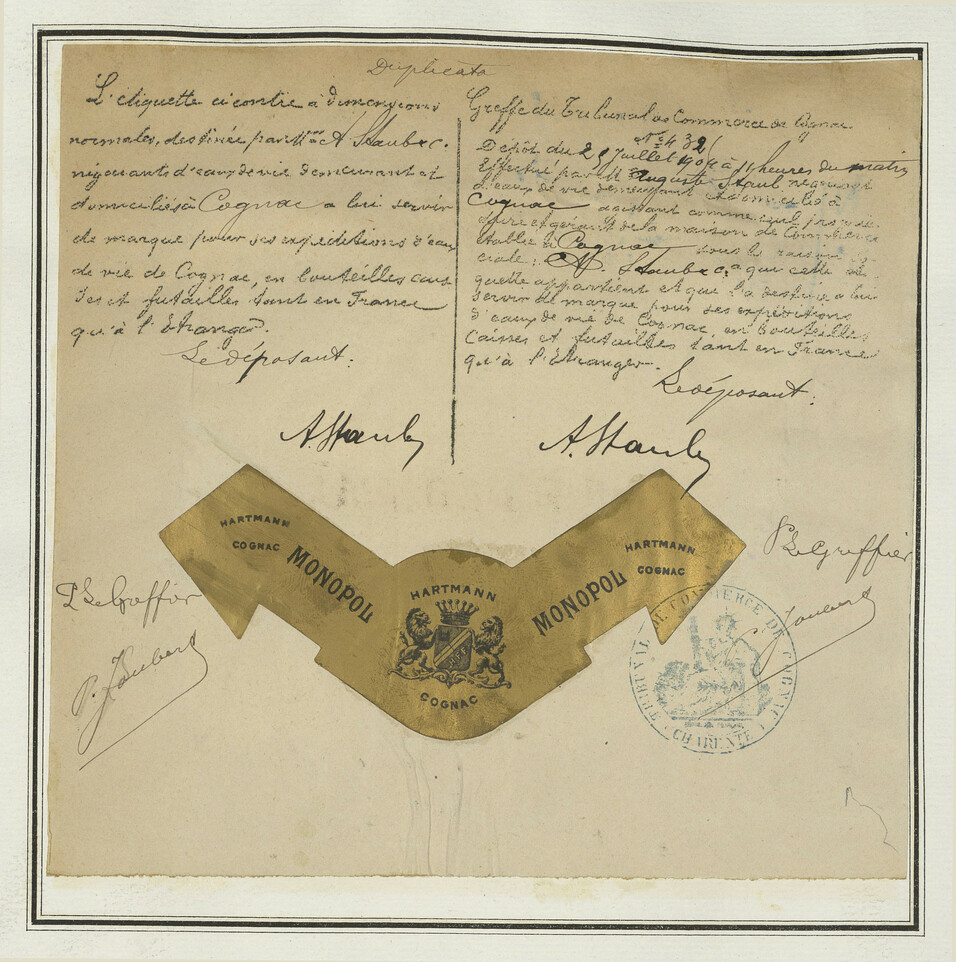 Duplicata
L'étiquette ci contre à dimensions
normales, destinée par Mr A Staub & Co.
négociants d'eaux de vie demeurant et
domiciliés à Cognac a lui servir
de marque pour ses expéditions d'eaux
de vie de Cognac, en bouteilles cais
ses et futailles tant en France
qu'à l'étranger.
Le déposant.
A. Staub
Greffe du Tribunal de Commerce de Cognac
No 432
Depôt du 29 Juillet 1904 à 11 heures du matin
Effectué par M Auguste Staub negociant
d'eaux de vie demeurant et domicilié à
Cognac agissant comme
et gérant de la maison de Commerce
établie à Cognac sous la raison so
ciale: A. Staub & Co a qui cette éti
quette appartient et que la destine a lui
servir de marque pour ses expéditions
d'eaux de vie de Cognac, en bouteilles
caisses et futailles tant en France
qu'à l'étranger.
Le déposant:
A. Staub
HARTMANN
COGNAC
MONOPOL
HARTMANN
COGNAC
MONOPOL
HARTMANN
COGNAC
P Le Greffier
P. Joubert
P Le Greffier
P. Joubert
TRIBUNAL DE COMMERCE DE COGNAC
CHARENTE